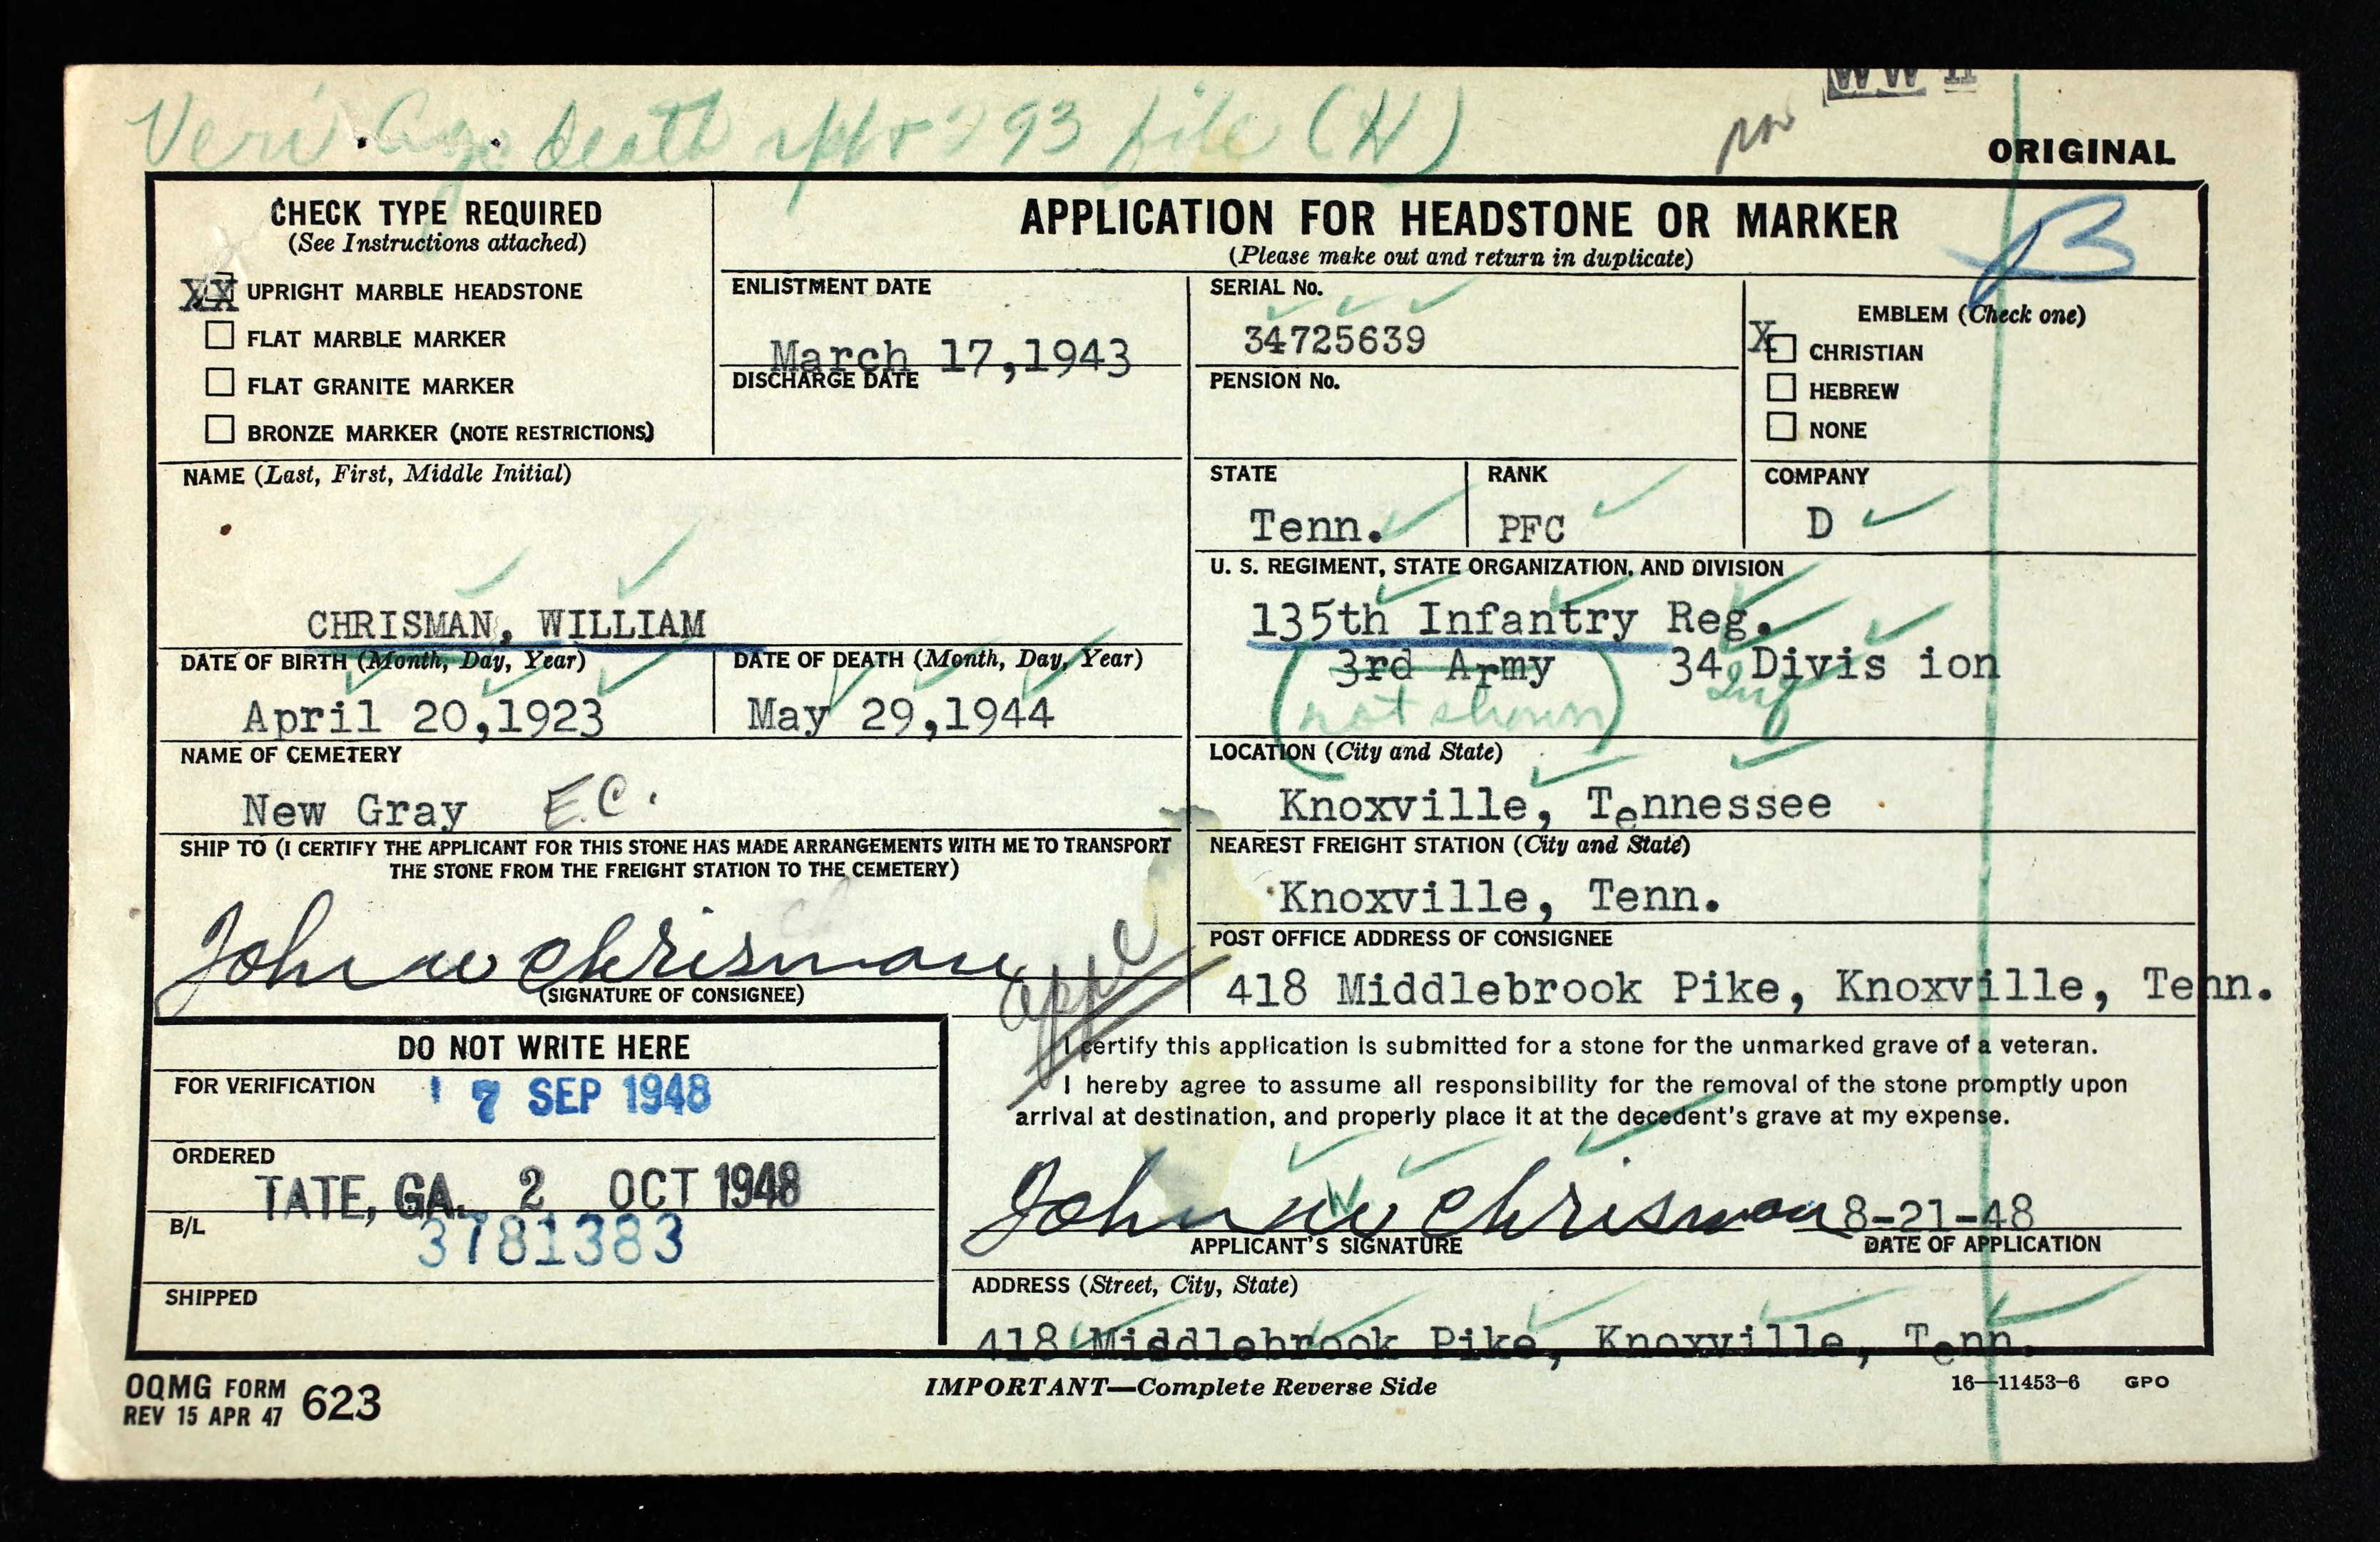 WW II
Veri. Age death rpt & 293 file (H)
ORIGINAL
CHECK TYPE REQUIRED
(See Instructions attached)
XX UPRIGHT MARBLE HEADSTONE
FLAT MARBLE MARKER
FLAT GRANITE MARKER
BRONZE MARKER (NOTE RESTRICTIONS)
APPLICATION FOR HEADSTONE OR MARKER
(Please make out and return in duplicate)
B
ENLISTMENT DATE
March 17,1943
DISCHARGE DATE
SERIAL No.
34725639
PENSION No.
EMBLEM (Check one)
X CHRISTIAN
HEBREW
NONE
NAME (Last, First, Middle Initial)
CHRISMAN, WILLIAM
STATE
Tenn.
RANK
PFC
COMPANY
D
U. S. REGIMENT, STATE ORGANIZATION, AND DIVISION
135th Infantry Reg.
3rd Army 34 Divis ion
(not shown) Inf
DATE OF BIRTH (Month, Day, Year)
April 20,1923
DATE OF DEATH (Month, Day, Year)
May 29,1944
NAME OF CEMETERY
New Gray E.C.
LOCATION (City and State)
Knoxville, Tennessee
SHIP TO (I CERTIFY THE APPLICANT FOR THIS STONE HAS MADE ARRANGEMENTS WITH ME TO TRANSPORT
THE STONE FROM THE FREIGHT STATION TO THE CEMETERY)
John W Chrisman
(SIGNATURE OF CONSIGNEE)
NEAREST FREIGHT STATION (City and State)
Knoxville, Tenn.
POST OFFICE ADDRESS OF CONSIGNEE
418 Middlebrook Pike, Knoxville, Tenn.
DO NOT WRITE HERE
FOR VERIFICATION 17 SEP 1948
ORDERED
TATE, GA. 2 OCT 1948
B/L 3781383
SHIPPED
I certify this application is submitted for a stone for the unmarked grave of a veteran.
I hereby agree to assume all responsibility for the removal of the stone promptly upon
arrival at destination, and properly place it at the decedent's grave at my expense.
John W Chrisman 8-21-48
APPLICANT'S SIGNATURE DATE OF APPLICATION
ADDRESS (Street, City, State)
418 Middlebrook Pike, Knoxville, Tenn.
OQMG FORM 623
REV 15 APR 47
IMPORTANT—Complete Reverse Side
16—11453-6 GPO